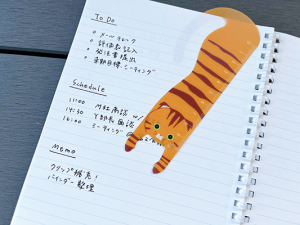 To Do
メールチェック
評価表記入
発注書提出
来期目標ミーティング
Schedule
11:00 M社商談 w/
14:30 Y部長面談
16:00 ミーティング
Memo
クリップ補充!
バインダー整理